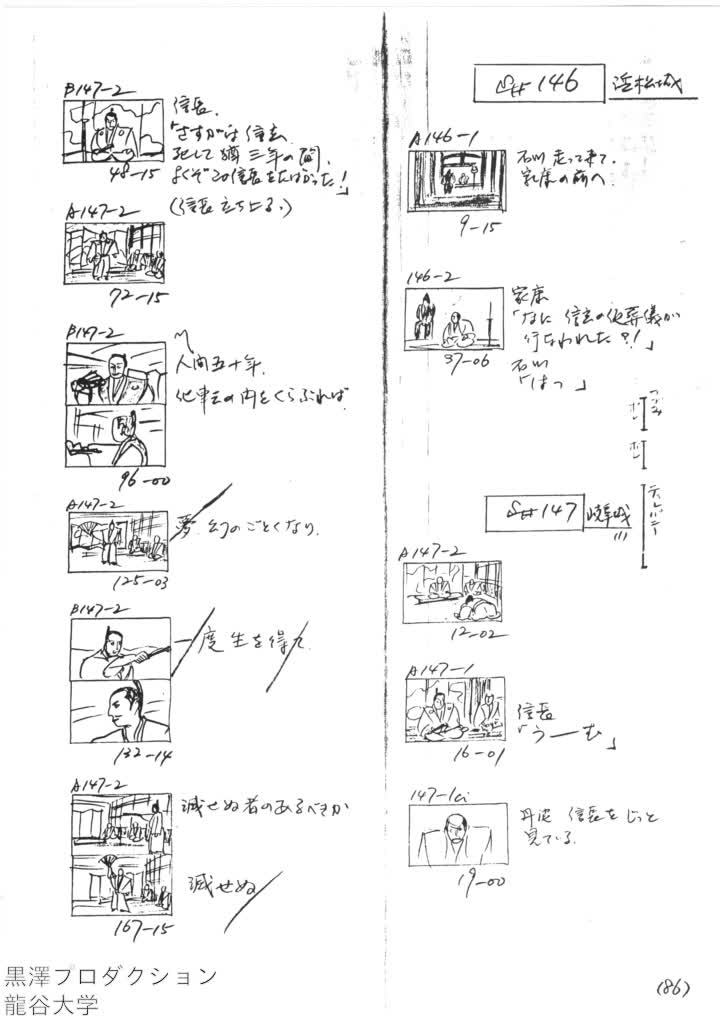 S# 146 浜松城
A146-1
石川 走って来て、
家康の前へ
9-15
146-2
家康
「なに 信玄の仮葬儀が
行なわれた?!」
石川
「はっ」
37-06
S# 147 岐阜城
A147-2
12-02
A147-1
信長
「うーむ」
16-01
147-1ci
丹波 信長をじっと
見ている。
19-00
B147-2
信長
「さすがは信玄
死して猶三年の間、
よくぞこの信長をたばかった!」
(信長立ち上る。)
48-15
A147-2
72-15
B147-2
人間五十年、
化転の内をくらぶれば
96-00
A147-2
夢幻のごとくなり、
125-03
B147-2
一度生を得て
132-14
A147-2
滅せぬ者のあるべきか
滅せぬ
167-15
(86)
黒澤プロダクション
龍谷大学